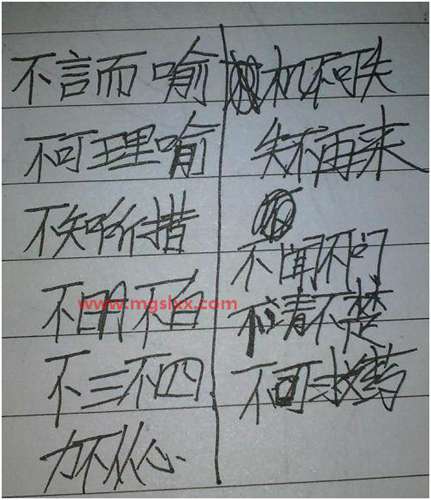 不言而喻
不可理喻
不知所措
不明不白
www.mgslxx.com
不三不四
力不从心
机不可失
失不再来
不闻不问
不清不楚
不可救药